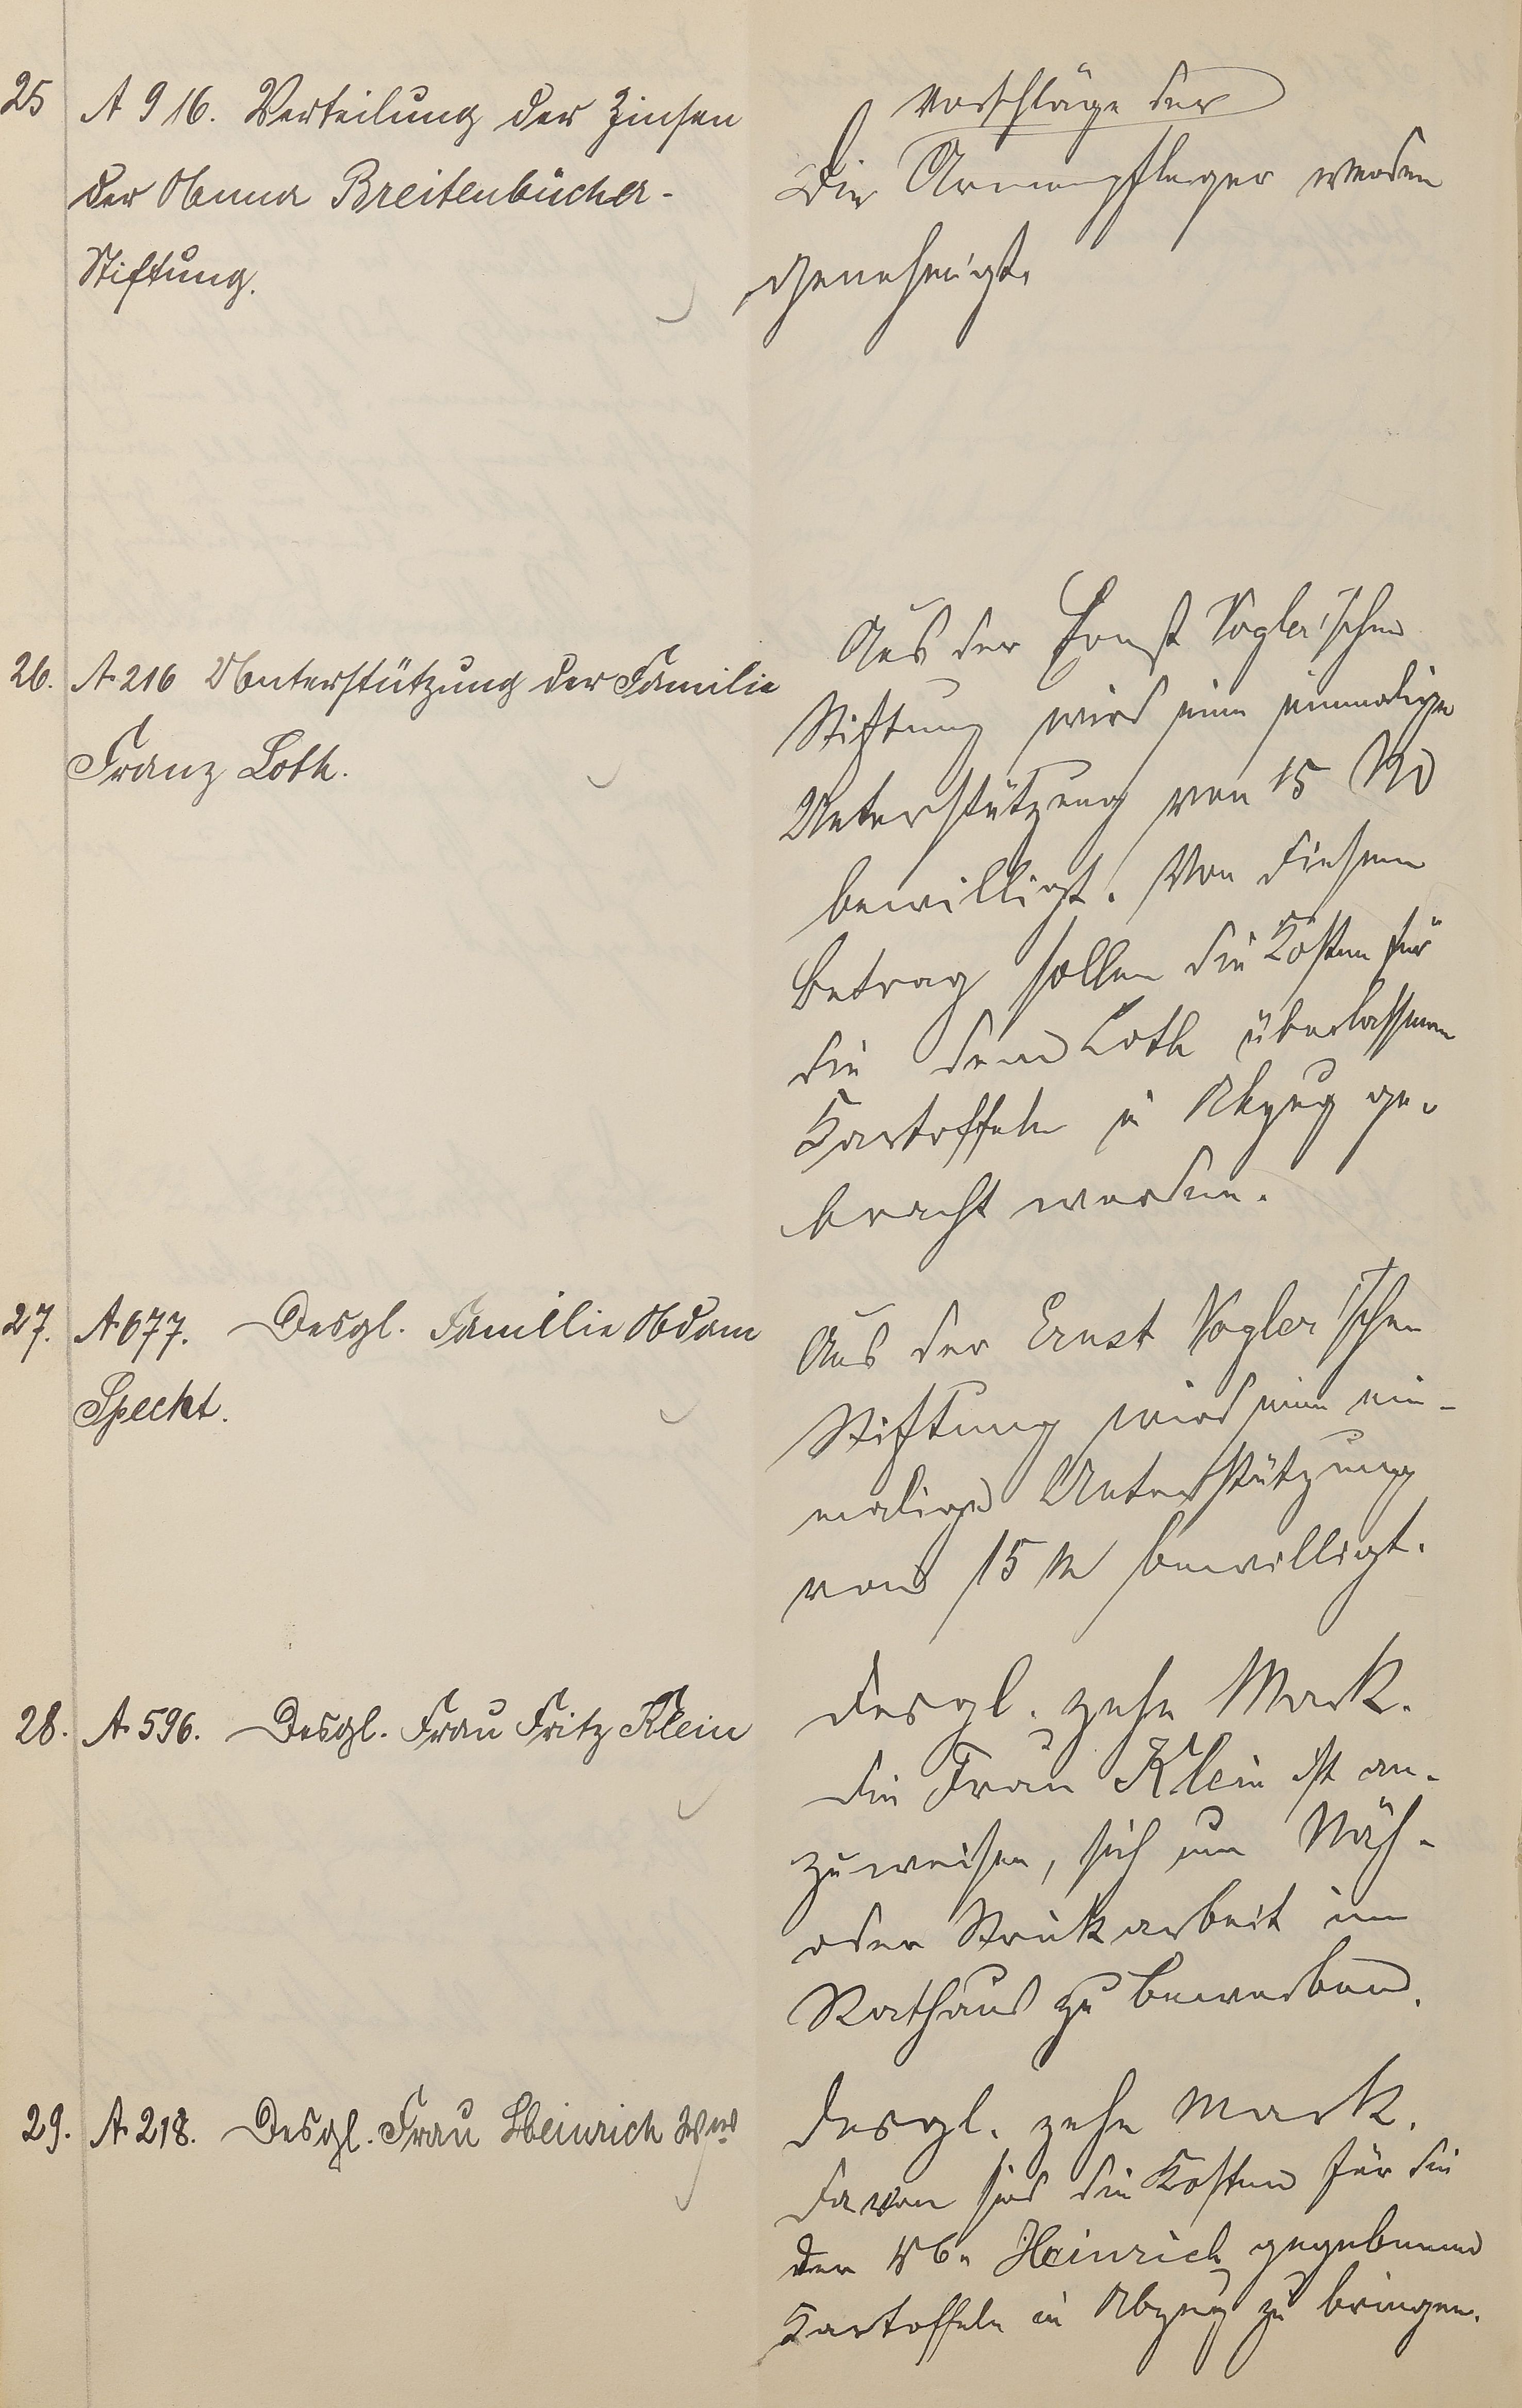 25
A 916. Verteilung der Zinsen
der Anna Breitenbücher-
Stiftung.
Vorschläge der
Die Armenpfleger werden
genehmigt.
26. A 216 Unterstützung der Familie
Franz Loth.
Aus der Ernst Vogler'schen
Stiftung wird eine einmalige
Unterstützung von 15 M
bewilligt. Von diesem
Betrag sollen die Kosten für
die dem Loth überlassenen
Kartoffeln in Abzug ge-
bracht werden.
27. A 677. Desgl. Familie Adam
Specht.
Aus der Ernst Vogler'schen
Stiftung wird eine ein-
malige Unterstützung
von 15 M bewilligt.
28. A 596. Desgl. Frau Fritz Klein
desgl. zehn Mark.
die Frau Klein ist an-
zuweisen, sich um Näh-
oder Strickarbeit im
Rathaus zu bewerben.
29. A 218. Desgl. Frau Heinrich Wwe
desgl. zehn Mark.
davon sind die Kosten für die
der Wb. Heinrich gegebenen
Kartoffeln in Abzug zu bringen.